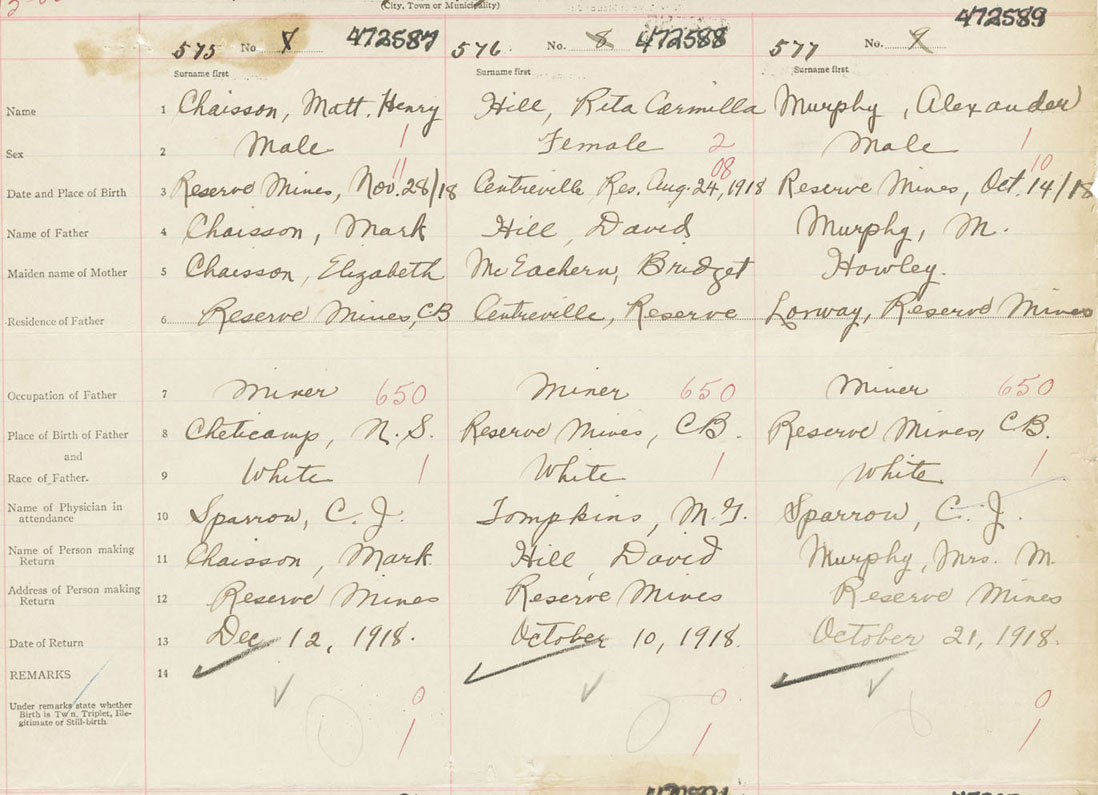 (City, Town or Municipality)
575 No. 8 472587 576 No. 8 472588 577 No. 8 472589
Surname first Surname first Surname first
Name 1 Chaisson, Matt. Henry Hill, Rita Carmilla Murphy, Alexander
Sex 2 Male 1 Female 2 Male 1
11 08 10
Date and Place of Birth 3 Reserve Mines, Nov. 28/18 Centreville Res. Aug. 24, 1918 Reserve Mines, Oct. 14/18
Name of Father 4 Chaisson, Mark Hill, David Murphy, M.
Maiden name of Mother 5 Chaisson, Elizabeth McEachern, Bridget Howley.
Residence of Father 6 Reserve Mines, CB Centreville, Reserve Lorway, Reserve Mines
Occupation of Father 7 Miner 650 Miner 650 Miner 650
Place of Birth of Father 8 Cheticamp, N.S. Reserve Mines, CB. Reserve Mines, CB.
and
Race of Father. 9 White 1 White 1 White 1
Name of Physician in
attendance 10 Sparrow, C. J. Tompkins, M.G. Sparrow, C. J.
Name of Person making
Return 11 Chaisson, Mark Hill, David Murphy, Mrs. M.
Address of Person making
Return 12 Reserve Mines Reserve Mines Reserve Mines
Date of Return 13 Dec 12, 1918. October 10, 1918. October 21, 1918.
REMARKS 14
Under remarks state whether
Birth is Twin, Triplet, Ille-
gitimate or Still-birth.
0 0 0
1 1 1